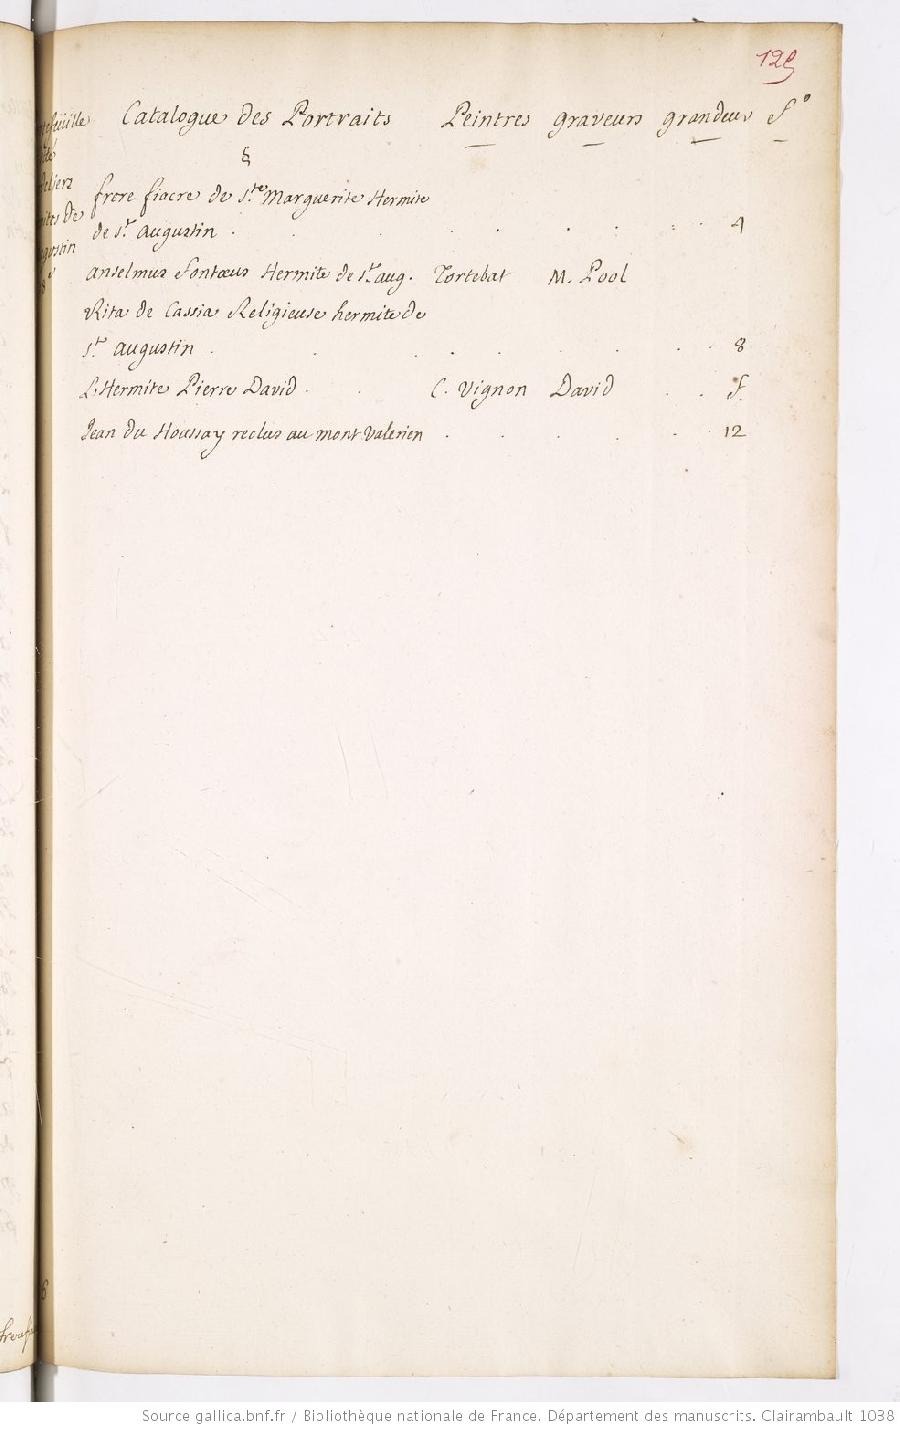 125
Catalogue des Portraits Peintres graveurs grandeur f°
§
frere fiacre de s.te Marguerite Hermite
de s.t Augustin . . . . . . . . . . 4
Anselmus fontœus Hermite de s.t aug. Tortebat M. Pool
Rita de Cassia Religieuse hermite de
s.t augustin . . . . . . . . 8
L'Hermite Pierre David . . C. Vignon David . . f.
Jean du Houssay reclus au mont valerien . . . . . 12
Source gallica.bnf.fr / Bibliothèque nationale de France. Département des manuscrits. Clairambault 1038